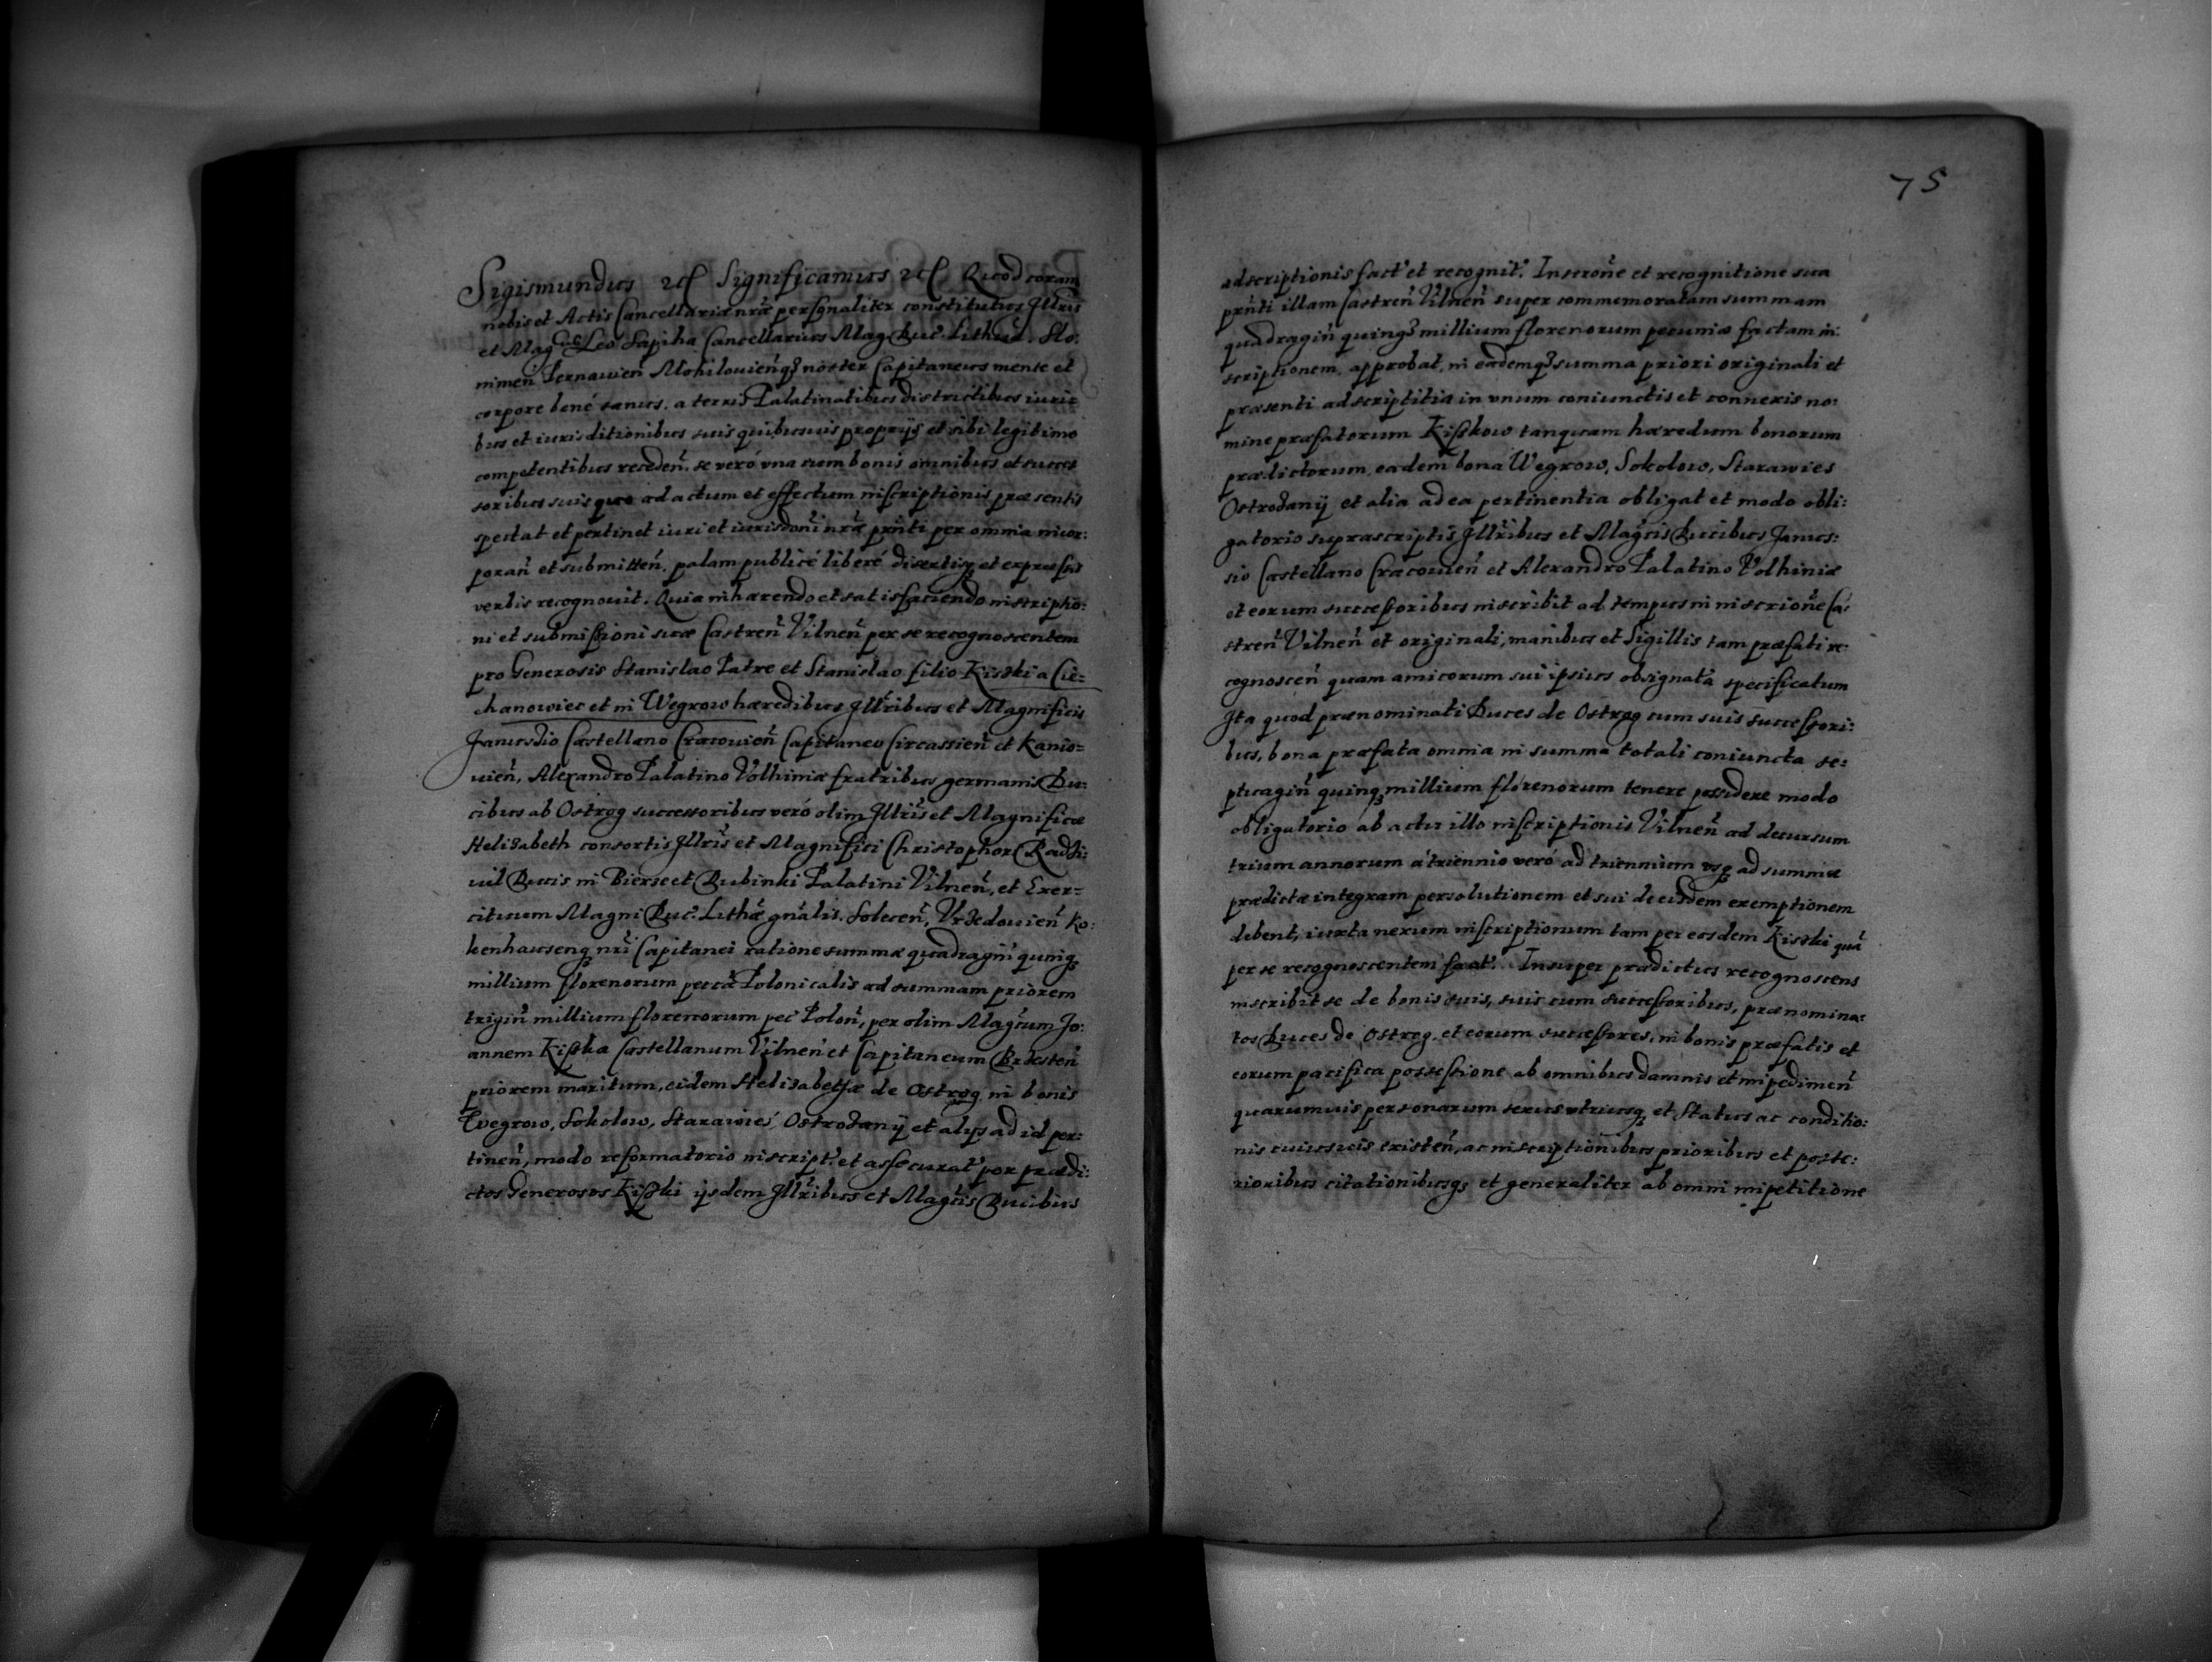 Sigismundus etc Significamus etc Quod coram
nobis et Actis Cancellariæ nr̃æ personaliter constitutus Jllris
et Mag̃cus Leo Sapiha Cancellarius Mag Duc̃. Lithua. Slo:
nimen̄ Pernauien̄ Mohilouien̄qȝ noster Capitaneus mente et
corpore bené sanus. a terris Palatinatibus districtibus iuri
bus et iurisditionibus suis quibusuis proprijs et sibi legitimo
competentibus receden̄. se veró vna cum bonis omnibus et succes
soribus suis quo ad actum et effectum inscriptionis præsentis
spectat et pertinet iuri et iurisdoni nr̃æ pr̃nti per omnia incor:
poran̄ et submitten̄. palam publicé liberé disertisqȝ et expressis
verbis recognouit. Quia inhærendo et satisfaciendo inscriptio:
ni et submissioni suæ Castren̄ Vilnen̄ per se recognoscentem
pro Generosis Stanislao Patre et Stanislao filio Kiszki a Cie=
chanowiec et in Wegrow hæredibus Jllr̃ibus et Magnificis
Janussio Castellano Cracouien̄ Capitaneo Circassien̄ et Kanio=
uien̄, Alexandro Palatino Volhiniæ fratribus germanis Du:
cibus ab Ostrog successoribus veró olim Jllr̃is et Magnificæ
Helizabeth consortis Jllr̃is et Magnifici Christophori Radzi:
uil Ducis in Bierze et Dubinki Palatini Vilnen̄, et Exer=
cituum Magni Duc̃. Lithæ gnãlis. Solecen̄, Vrzedouien̄ Ko:
kenhausenqȝ nr̃i Capitanei ratione summæ quadragin̄ quinqȝ
millium florenorum peccæ Polonicalis ad summam priorem
trigin̄ millium florenorum pec̃ Polon̄, per olim Mag̃cum Jo:
annem Kiszka Castellanum Vilnen̄ et Capitaneum Brzesten̄
priorem maritum, eidem Helizabethæ de Ostrog in bonis
Wegrow, Sokolow, Starawies Ostrożany et alijs ad id per:
tinen̄, modo reformatorio inscript. et assecurat̃ per prædi:
ctos Generosos Kiszki ijsdem Jllr̃ibus et Mag̃cis Ducibus
75
adscriptionis fact̃ et recognit̃. Inscrone et recognitione sua
pr̃nti illam Castren̄ Vilnen̄ super commemoratam summam
quadragin̄ quinqȝ millium florenorum pecuniæ factam in:
scriptionem, approbat, in eademqȝ summa priori originali et
præsenti adscriptitia in vnum coniunctis et connexis no:
mine præfatorum Kiszkow tanquam hæredum bonorum
prædictorum, eadem bona Wegrow, Sokolow, Starawies
Ostrożany et alia ad ea pertinentia obligat et modo obli:
gatorio suprascriptis Jllr̃ibus et Mag̃cis Ducibus Janus:
sio Castellano Cracouien̄ et Alexandro Palatino Volhiniæ
et eorum successoribus inscribit ad tempus in inscrione Ca:
stren̄ Vilnen̄ et originali, manibus et Sigillis tam præfati re:
cognoscen̄ quam amicorum sui ipsius obsignata specificatum
Jta quod prænominati Duces de Ostrog cum suis successori:
bus, bona præfata omnia in summa totali coniuncta se:
ptuagin̄ quinqȝ millium florenorum tenere possidere modo
obligatorio ab actu illo inscriptionis Vilnen̄ ad decursum
trium annorum á triennio veró ad triennium vsqȝ ad summæ
prædictæ integram persolutionem et sui de eisdem exemptionem
debent, iuxta nexum inscriptionum tam per eosdem Kiszki quã
per se recognoscentem fact̃. Insuper prædictus recognoscens
inscribit se de bonis suis, suis cum successoribus, prænomina:
tos Duces de Ostrog. et eorum successores, in bonis præfatis et
eorum pacifica possessione ab omnibus damnis et impedimen̄
quarumuis personarum sexus vtriusqȝ et Status ac conditio:
nis cuiusuis existen̄, ac inscriptionibus prioribus et poste:
rioribus citationibusqȝ et generaliter ab omni impetitione